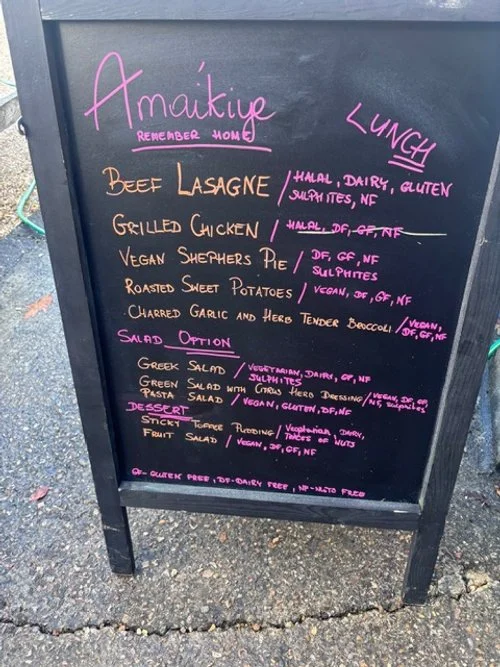 Amaikiye
REMEMBER HOME
LUNCH
BEEF LASAGNE / HALAL, DAIRY, GLUTEN
SULPHITES, NF
GRILLED CHICKEN / HALAL, DF, GF, NF
VEGAN SHEPHERS PIE / DF, GF, NF
SULPHITES
ROASTED SWEET POTATOES / VEGAN, DF, GF, NF
CHARRED GARLIC AND HERB TENDER BROCCOLI / VEGAN,
DF, GF, NF
SALAD OPTION
GREEK SALAD / VEGETARIAN, DAIRY, GF, NF
SULPHITES
GREEN SALAD WITH CITRUS HERB DRESSING / VEGAN, DF, GF,
NF, Sulphites
PASTA SALAD / VEGAN, GLUTEN, DF, NF
DESSERT
STICKY TOFFEE PUDDING / Vegetarian, DAIRY,
TRACES OF NUTS
FRUIT SALAD / VEGAN, DF, GF, NF
GF- GLUTEN FREE, DF-DAIRY FREE, NF-NUTS FREE